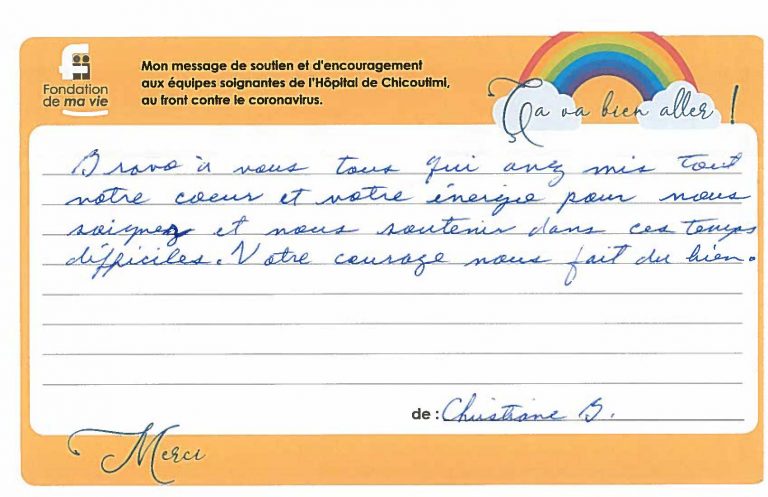 Fondation
de ma vie
Mon message de soutien et d'encouragement
aux équipes soignantes de l'Hôpital de Chicoutimi,
au front contre le coronavirus.
Ça va bien aller !
Bravo à vous tous qui avez mis tout
votre coeur et votre énergie pour nous
soigner et nous soutenir dans ces temps
difficiles. Votre courage nous fait du bien.
de : Christiane B.
Merci